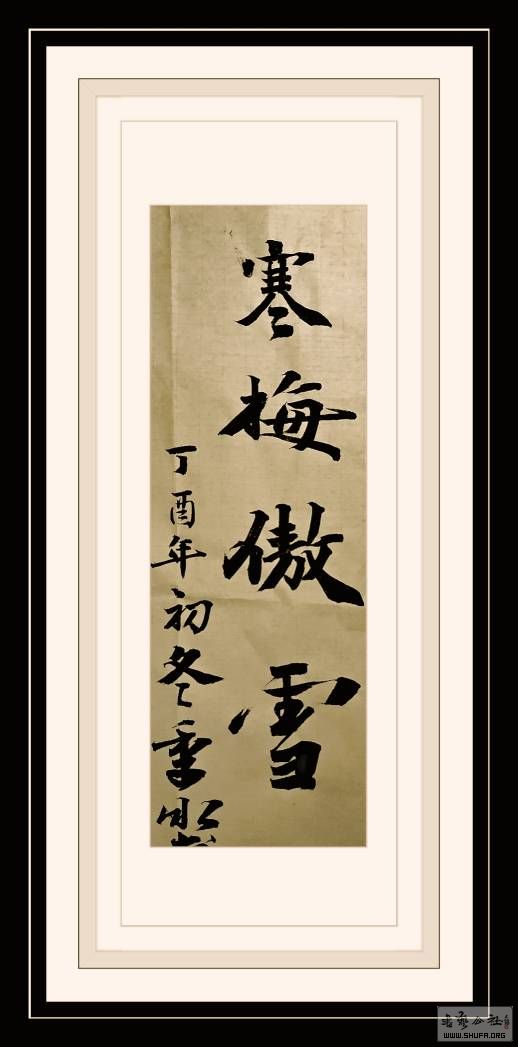 寒梅傲雪
丁酉年初冬季
书艺公社
WWW.SHUFA.ORG